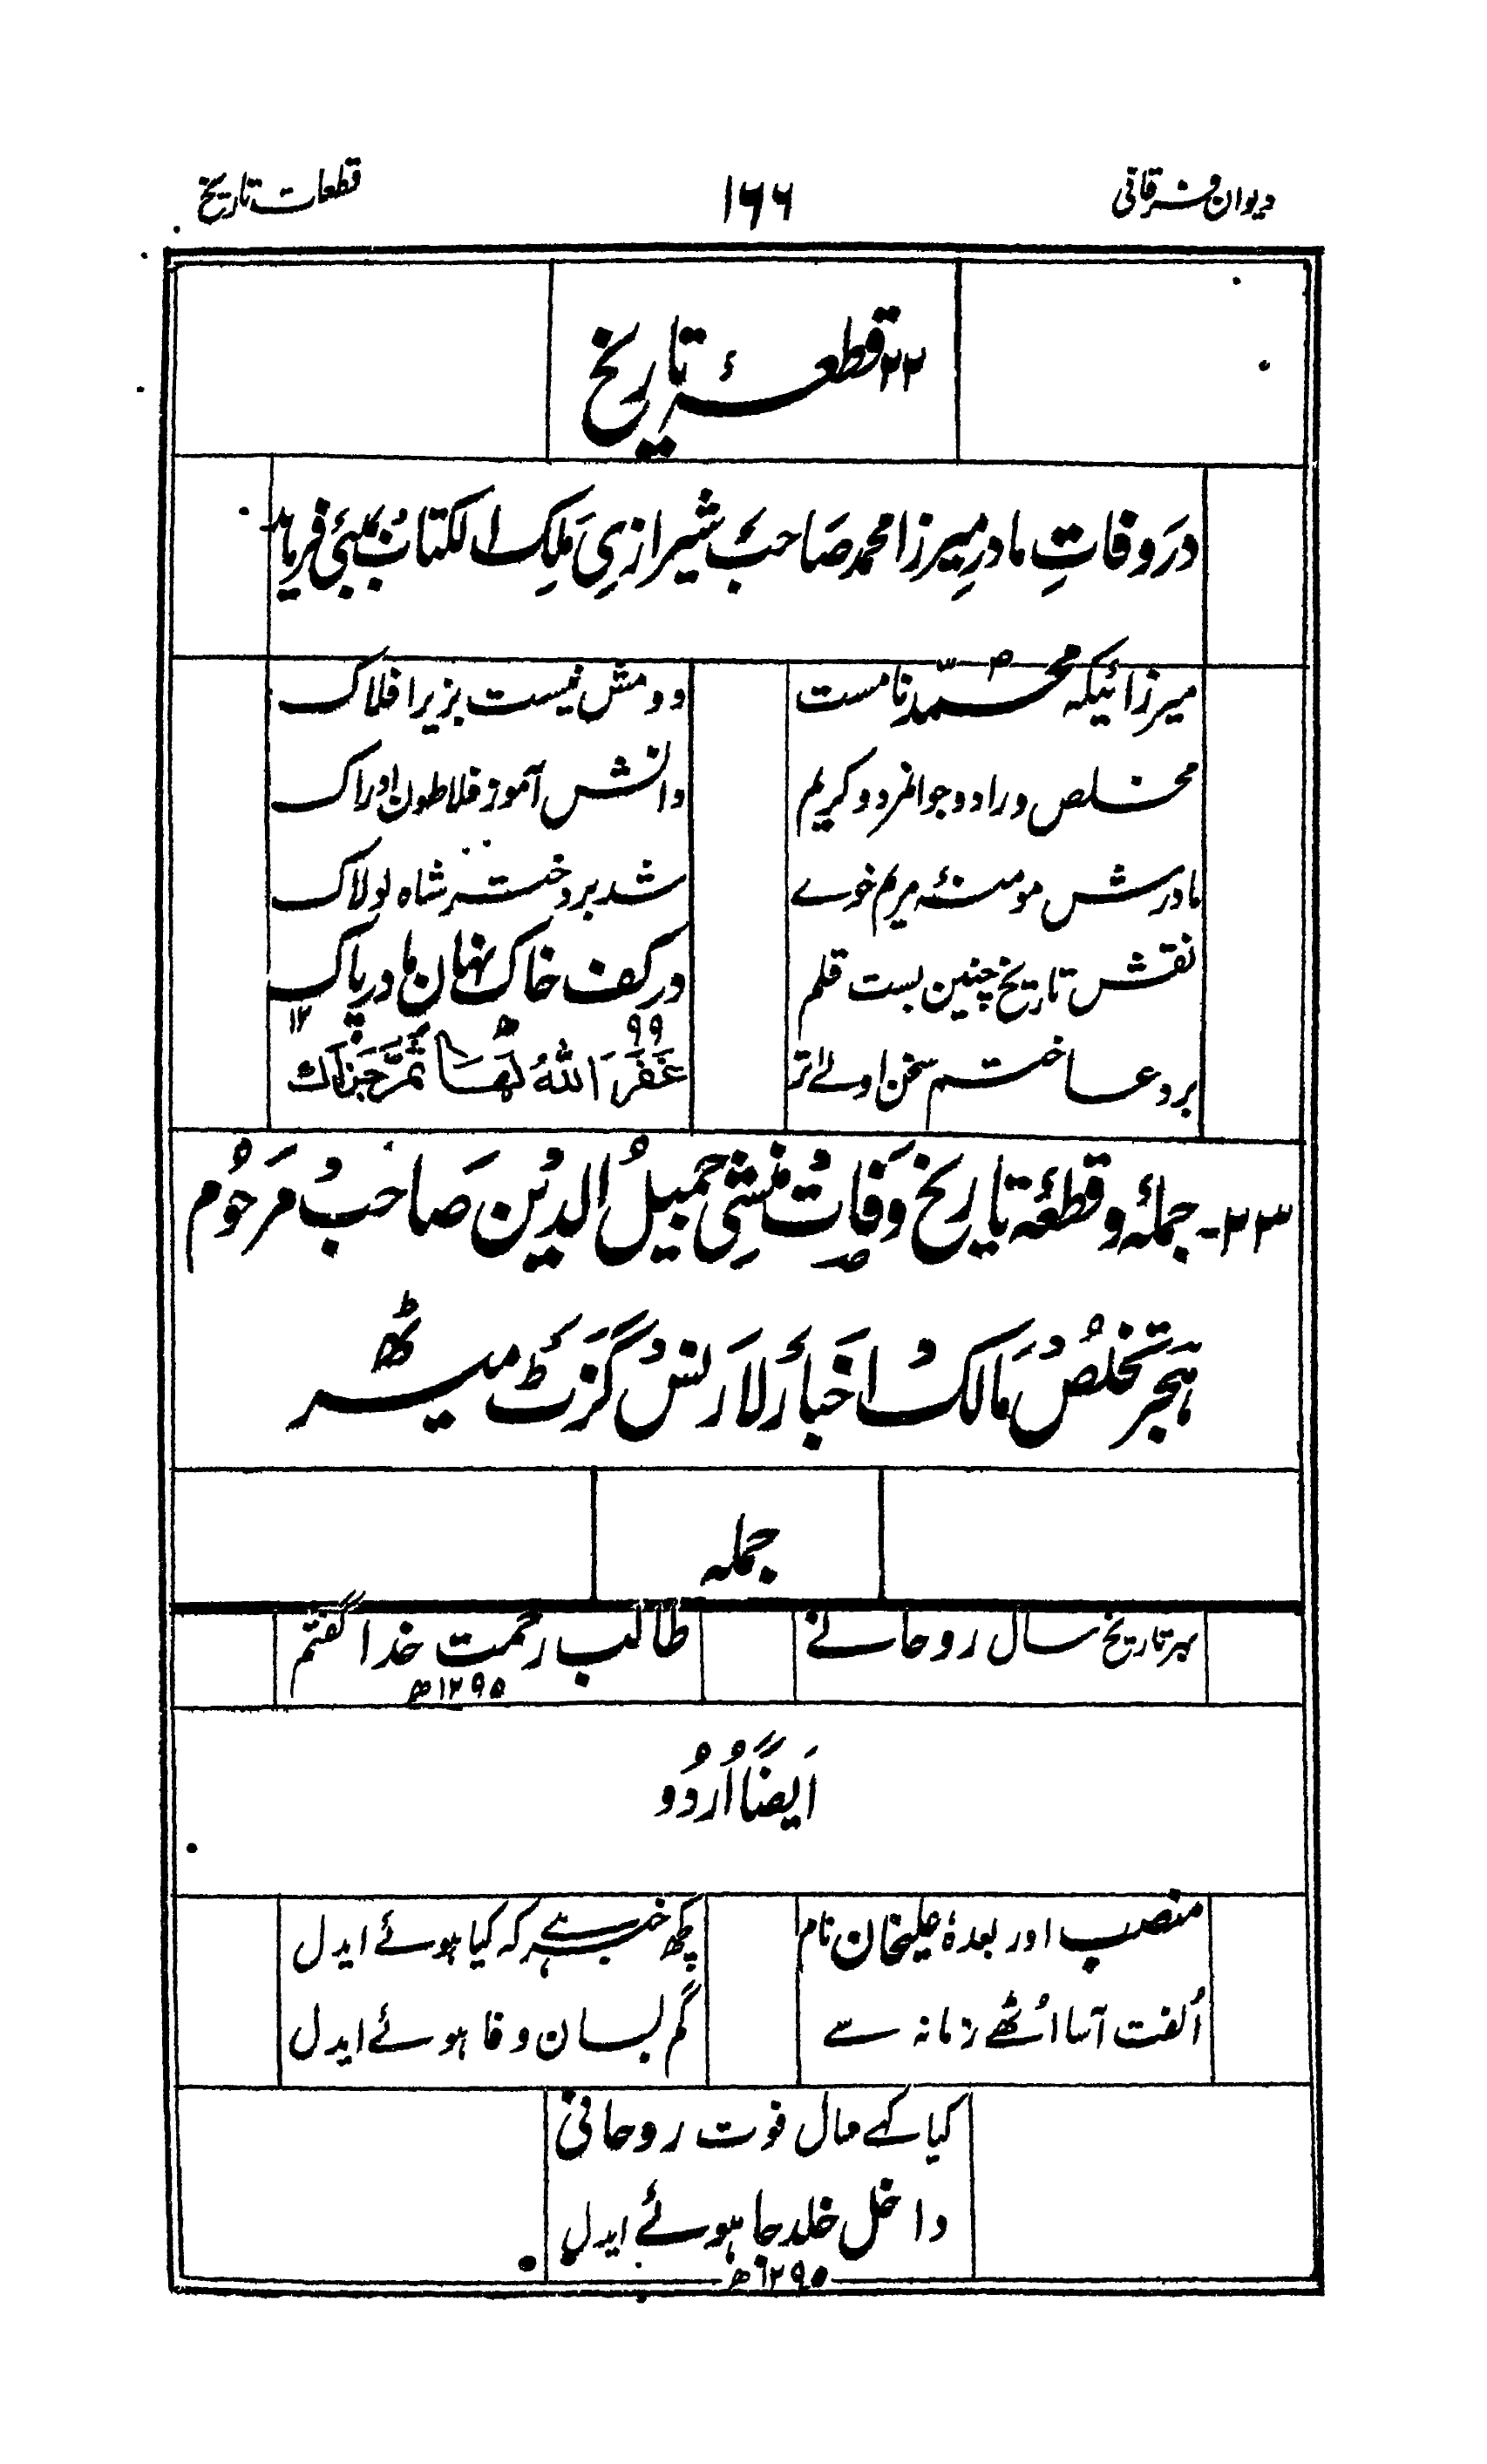 دیوان فرقانی ۱۶۶ قطعات تاریخ
۲۲ قطعۂ تاریخ
در وفاتِ مادرِ میرزا محمد صاحب شیرازی مَلِک الکتاب بمبئی فرماید
میرزائیکہ محمّد نامست دومش نیست بزیر افلاک
مخلص و راد و جوانمرد و کریم دانش آموز فلاطون ادراک
مادرش مومنۂ مریم خوے شد بر دختر شاہ لولاک
نقش تاریخ چنین بست قلم در کف خاک نہان مادر پاک
۱۲۹۹ھ
بر دعا ختم سخن اولے تر غَفَرَ اللہُ لَهَا ثُمَّ
۲۳- جملۂ و قطعۂ تاریخ وفات منشی جمیل الدین صاحب مرحوم
ہجر تخلص مالک اخبار لارنس گزٹ میرٹھ
جملہ
بہر تاریخ سال روحانے طالب رحمت خدا گفتم
۱۲۹۵ھ
ایضًا اُردُو
منصب اور بعدۂ خان نام کچھ خبر ہے کہ کیا ہوئے ایدل
اُلفت آسا اُٹھے زمانہ سے گم بسان وفا ہوئے ایدل
کیا کہے سال فوت روحانی
داخل خلد جا ہوئے ایدل
۱۲۹۵ھ